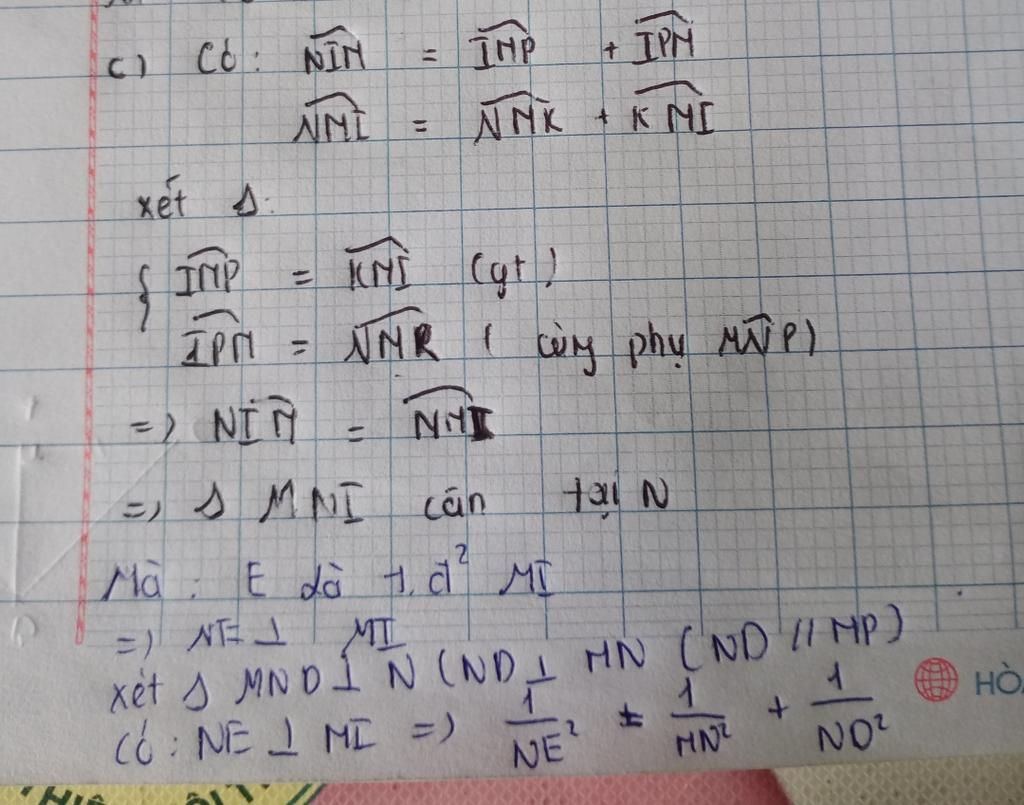 c) Có: NIM = IMP + IPM
NMI = NMK + KMI
xét Δ:
{ IMP = KMI (gt)
IPM = NMK ( cùng phụ MNP)
=> NIM = NMI
=> Δ MNI cân tại N
Mà : E là t.đ² MI
=> NE ⊥ MI
xét Δ MND ⊥ N (ND ⊥ MN (ND // MP)
Có : NE ⊥ MI => 1/NE² = 1/MN² + 1/ND²
HÒ